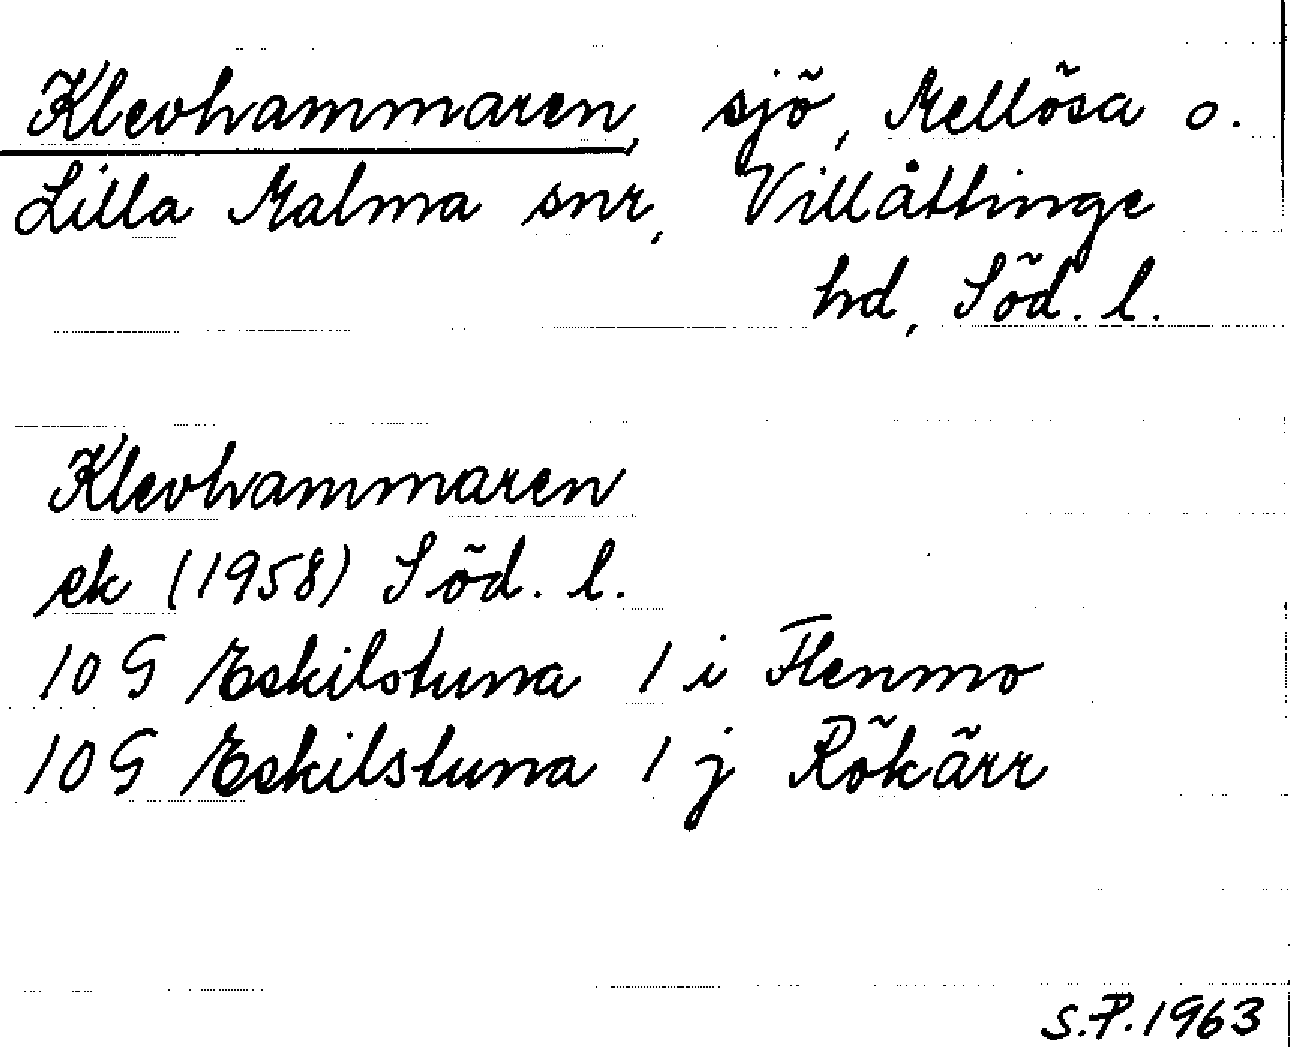 Klevhammaren, sjö, Mellösa o.
Lilla Malma snr, Villåttinge
hd, Söd. l.
Klevhammaren
ek (1958) Söd. l.
10 G Eskilstuna 1 i Flenmo
10 G Eskilstuna 1 j Rökärr
S.P. 1963